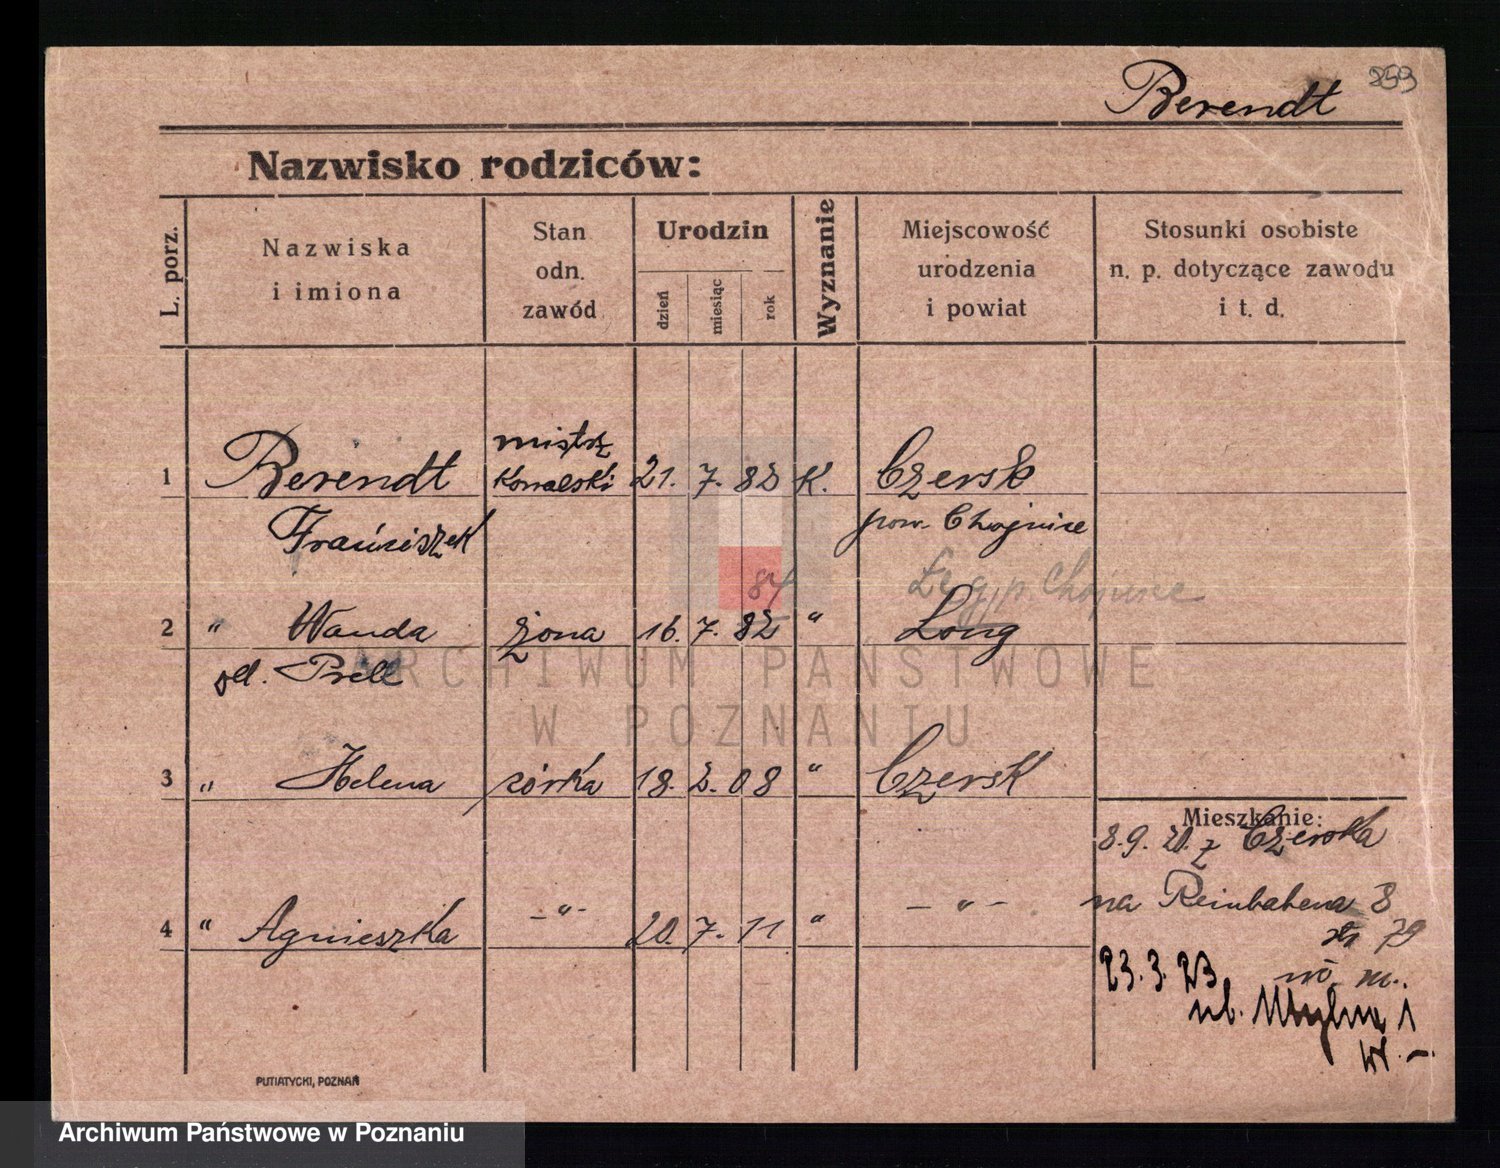 859
Berendt
Nazwisko rodziców:
L. porz.
Nazwiska
i imiona
Stan
odn.
zawód
Urodzin
dzień
miesiąc
rok
Wyznanie
Miejscowość
urodzenia
i powiat
Stosunki osobiste
n. p. dotyczące zawodu
i t. d.
mistrz
1 Berendt kowalski 21. 7. 82 K. Czersk
Franciszek pow. Chojnice
84 Łęg, p. Chojnice
2 " Wanda żona 16. 7. 82 " Long
Prell
ARCHIWUM PAŃSTWOWE
W POZNANIU
3 " Helena córka 18. 2. 08 " Czersk
Mieszkanie:
8. 9. 20. z Czerska
na 8
4 " Agnieszka - " - 20. 7. 11 " - " -
79
23. 3. 23 m.
1
PUTIATYCKI, POZNAŃ
Archiwum Państwowe w Poznaniu